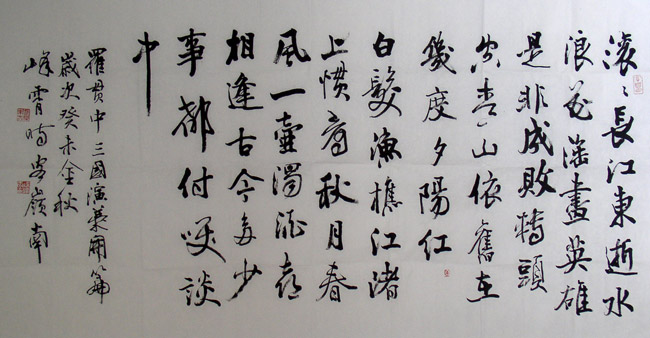 滚〻長江東逝水
浪花淘盡英雄
是非成敗轉頭
空青山依舊在
幾度夕陽紅
白髮漁樵江渚
上慣看秋月春
風一壺濁酒喜
相逢古今多少
事都付笑談
中
羅貫中三國演義開篇
歲次癸未金秋
峰霄時客嶺南